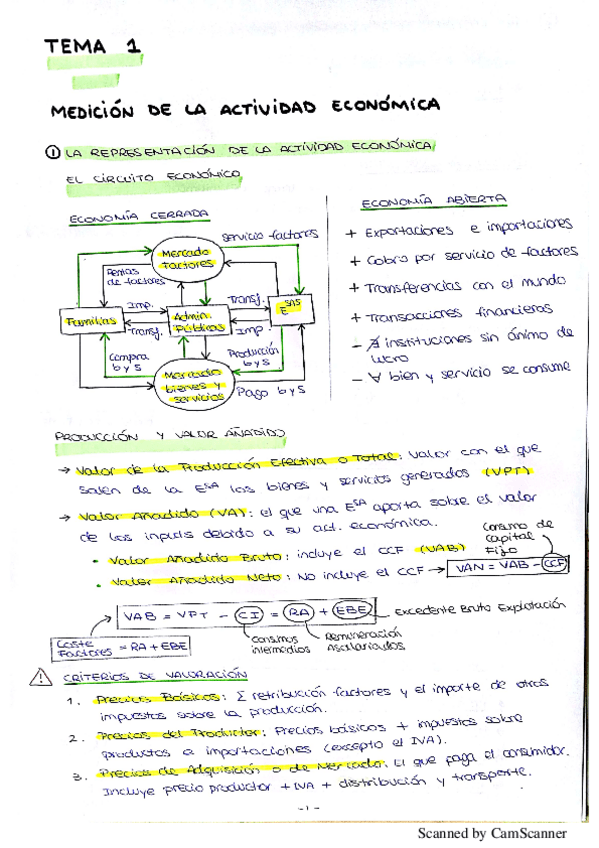 TEMA 1
MEDICIÓN DE LA ACTIVIDAD ECONÓMICA
① LA REPRESENTACIÓN DE LA ACTIVIDAD ECONÓMICA
EL CIRCUITO ECONÓMICO
ECONOMÍA CERRADA
Servicio factores
Mercado
factores
Rentas
de factores
Familias
Imp.
Transf.
Admin.
Públicas
Transf.
Imp.
E SAS
Compra
b y s
Producción
b y s
Mercado
bienes y
servicios
Pago b y s
ECONOMÍA ABIERTA
+ Exportaciones e importaciones
+ Cobro por servicio de factores
+ Transferencias con el mundo
+ Transacciones financieras
- ∄ instituciones sin ánimo de
lucro
- ∀ bien y servicio se consume
PRODUCCIÓN Y VALOR AÑADIDO
→ Valor de la Producción Efectiva o Total: valor con el que
salen de la Eˢᴬ los bienes y servicios generados (VPT)
→ Valor Añadido (VA): el que una Eˢᴬ aporta sobre el valor
de los inputs debido a su act. económica.
• Valor Añadido Bruto: incluye el CCF (VAB)
Consumo de
Capital
Fijo
• Valor Añadido Neto: No incluye el CCF → VAN = VAB - CCF
VAB = VPT - CI = RA + EBE
Excedente Bruto Explotación
Coste
Factores = RA + EBE
Consumos
intermedios
Remuneración
Asalariados
⚠ CRITERIOS DE VALORACIÓN
1. Precios Básicos: Σ retribución factores y el importe de otros
impuestos sobre la producción.
2. Precios del Productor: Precios básicos + impuestos sobre
productos a importaciones (excepto el IVA).
3. Precios de Adquisición o de Mercado: El que paga el consumidor.
Incluye precio productor + IVA + distribución y transporte.
-1-
Scanned by CamScanner